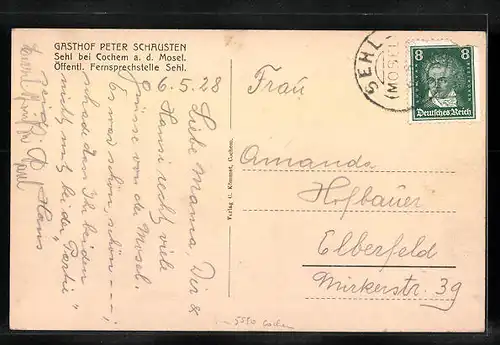 GASTHOF PETER SCHAUSTEN
Sehl bei Cochem a. d. Mosel.
Öffentl. Fernsprechstelle Sehl.
6.5.28
Liebe Mama, Dir &
Hanni recht viele
Grüsse von der Mosel.
Es war schön, schön - - - ;
schade dass Ihr beiden
nicht mit bei der "Partie"
Hans
Verlag C. Cochem.
SEHL
(MOSEL
8 8
Deutsches Reich
Frau
Amanda
Hofbauer
Elberfeld
Mirkerstr. 39
5590 Cochem